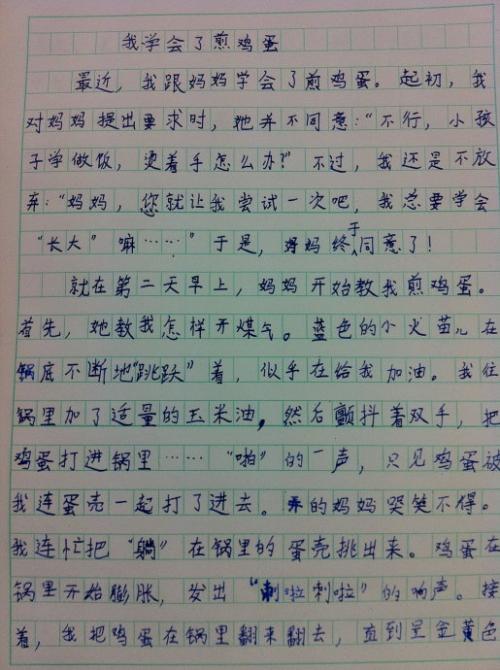 我学会了煎鸡蛋
最近，我跟妈妈学会了煎鸡蛋。起初，我
对妈妈提出要求时，她并不同意：“不行，小孩
子学做饭，烫着手怎么办？”不过，我还是不放
弃：“妈妈，您就让我尝试一次吧，我总要学会
“长大”嘛……”于是，妈妈终于同意了！
就在第二天早上，妈妈开始教我煎鸡蛋。
首先，她教我怎样开煤气。蓝色的小火苗儿在
锅底不断地“跳跃”着，似乎在给我加油。我往
锅里加了适量的玉米油，然后颤抖着双手，把
鸡蛋打进锅里……“啪”的一声，只见鸡蛋被
我连蛋壳一起打了进去。的妈妈哭笑不得。
我连忙把“躺”在锅里的蛋壳挑出来。鸡蛋在
锅里开始膨胀，发出“刺啦刺啦”的响声。接
着，我把鸡蛋在锅里翻来翻去，直到呈金黄色